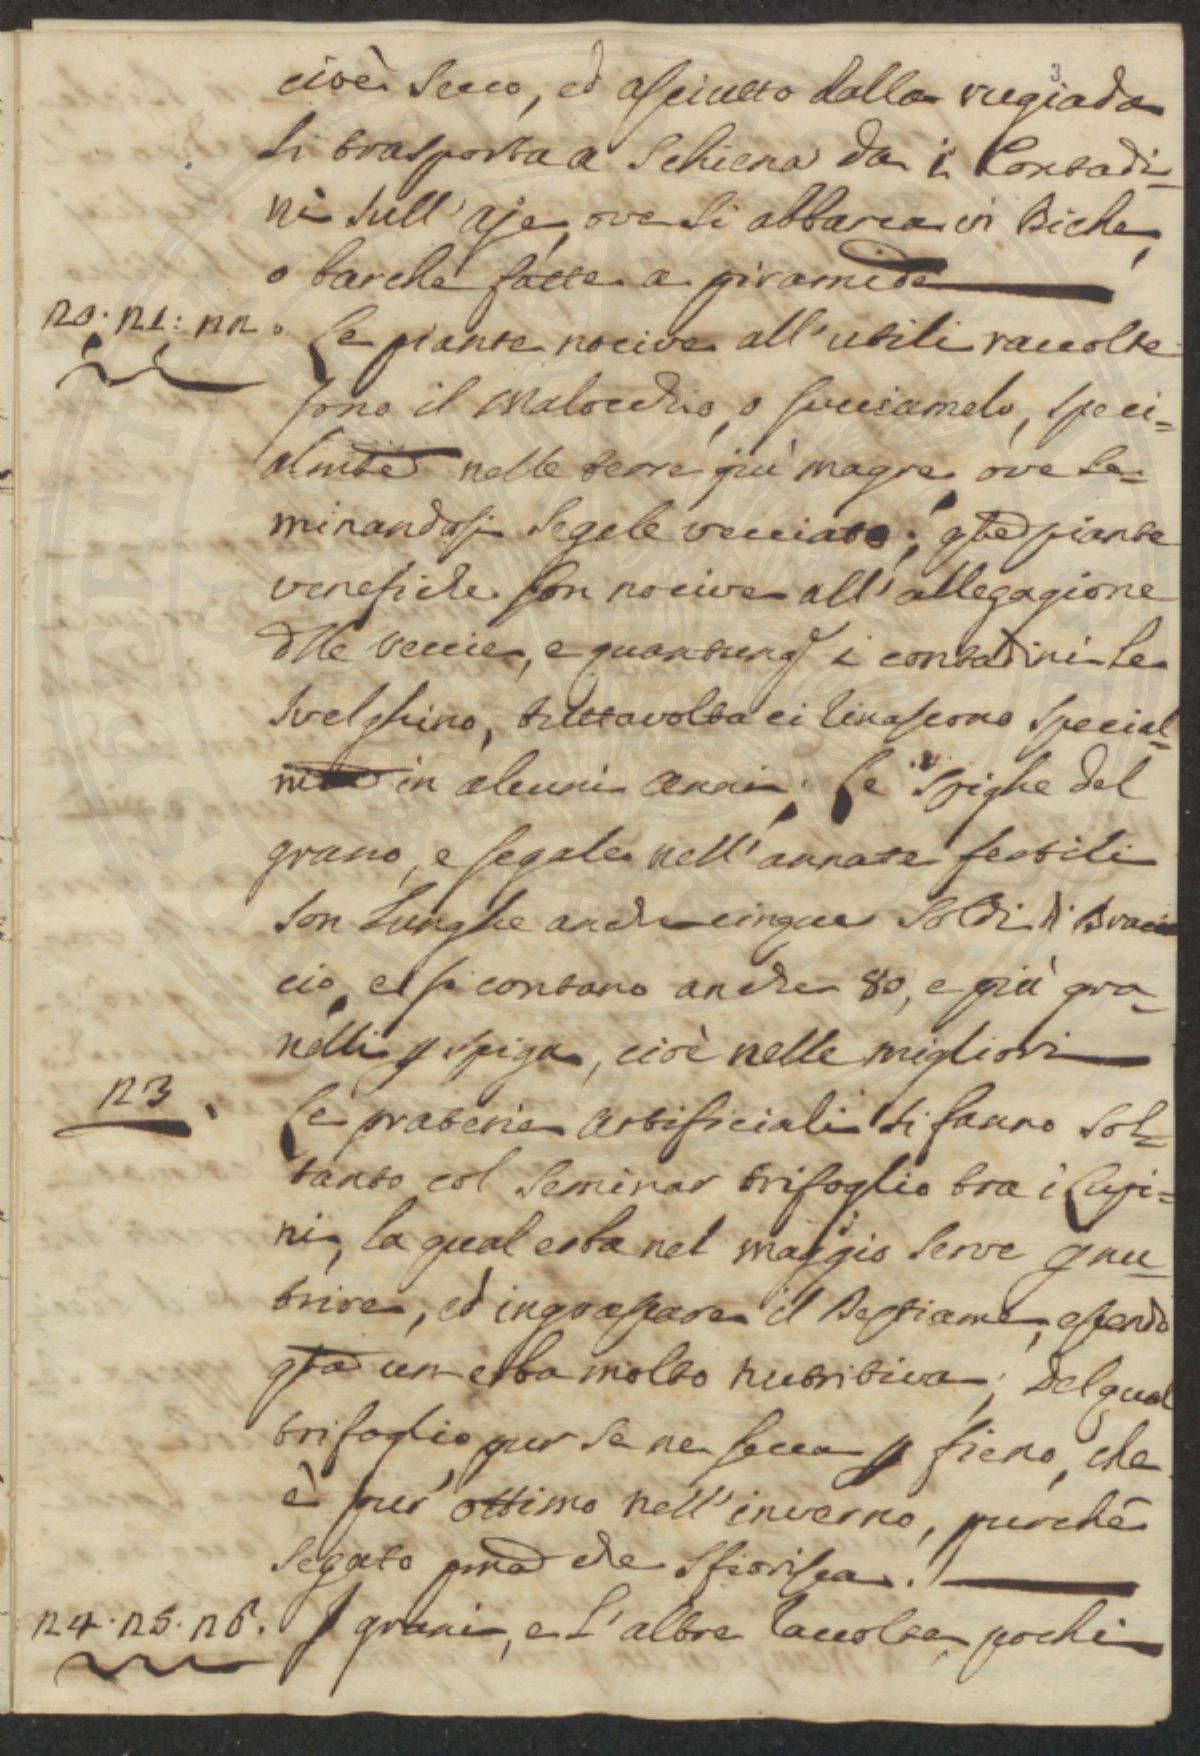 3
cioè secco, ed asciutto dalla rugiada
si trasporta a schiena da i Contadi=
ni sull'aje, ove si abbarca in Biche,
o barche fatte a piramide
20. 21: 22. Le piante nocive all'utili raccolte
sono il Malocchio, o succiamelo, speci=
almte nelle terre più magre, ove se=
minandosi segale vecciata; qte piante
venefiche son nocive all'allegagione
dlle veccie, e quantunq i contadini le
svelghino, tuttavolta ci rinascono special=
mte in alcuni anni; Le spighe del
grano, e segale nell'annate fertili
son lunghe anche cinque soldi di Brac
cio, e si contano anche 80, e più gra=
nelli p spiga, cioè nelle migliori
23. Le praterie artificiali si fanno sol=
tanto col seminar trifoglio tra i Lupi=
ni, la qual erba nel maggio serve p nu=
trire, ed ingrassare il Bestiame, essendo
qta un erba molto nutritiva; Del qual
trifoglio pur se ne secca p fieno, che
è pur ottimo nell'inverno, purchè
segato pma che sfiorisca.
24. 25. 26. I grani, e l'altre raccolte, pochi